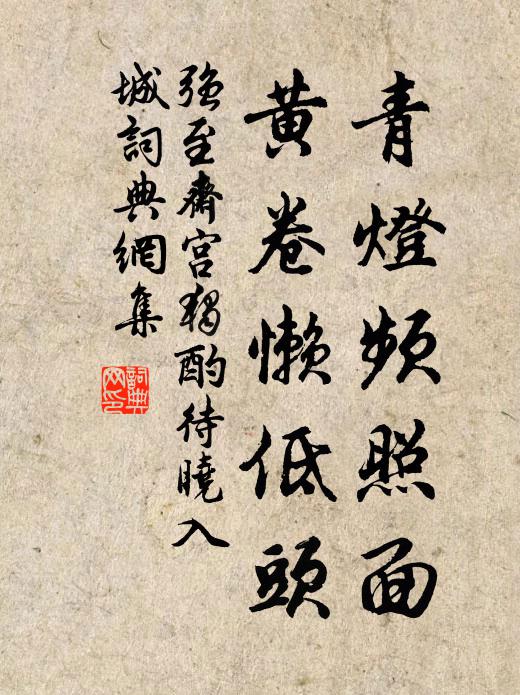 青燈頻照面
黄卷懶低頭
强至齋宫獨酌待曉入
城詞典網集
詞典
网印